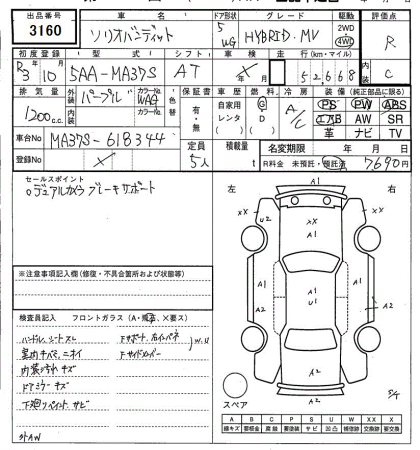 出品番号 車名 ドア形状 グレード 駆動 評価点
3160 ソリオバンディット 5 WG HYBRID・MV 2WD 4WD R
初度登録 型式 シフト 車検 走行(km・マイル) 内装
R3 10月 5AA-MA37S AT × 年 月 52,668 C
排気量 外装 パープル カラーNo. 色替 保証書 車歴 燃料 冷房 装備(純正部品に限る)
1200 c.c. 内装 カラーNo. 有・無 自家用 レンタ G D A/C PS PW ABS
エアB AW SR
革 ナビ TV
車台No MA37S-618344 定員 5人 積載量 t 名変期限 年 月 日
登録No × R料金 未預託・預託済 7,690円
セールスポイント
○デュアルカメラブレーキサポート
左 右
A1
XX U2 XX XX
A1
A1 A1 A1
A2 U1 A2
A2
A2
スペア
※注意事項記入欄(修復・不具合箇所および状態等)
検査員記入 フロントガラス(A・飛石、×要ス)
ハンドル、シートスレ
室内キバミ、ニオイ
内装汚れキズ
ドアミラーキズ
下廻リペイント、サビ
外AW
A B C P S U W X XX